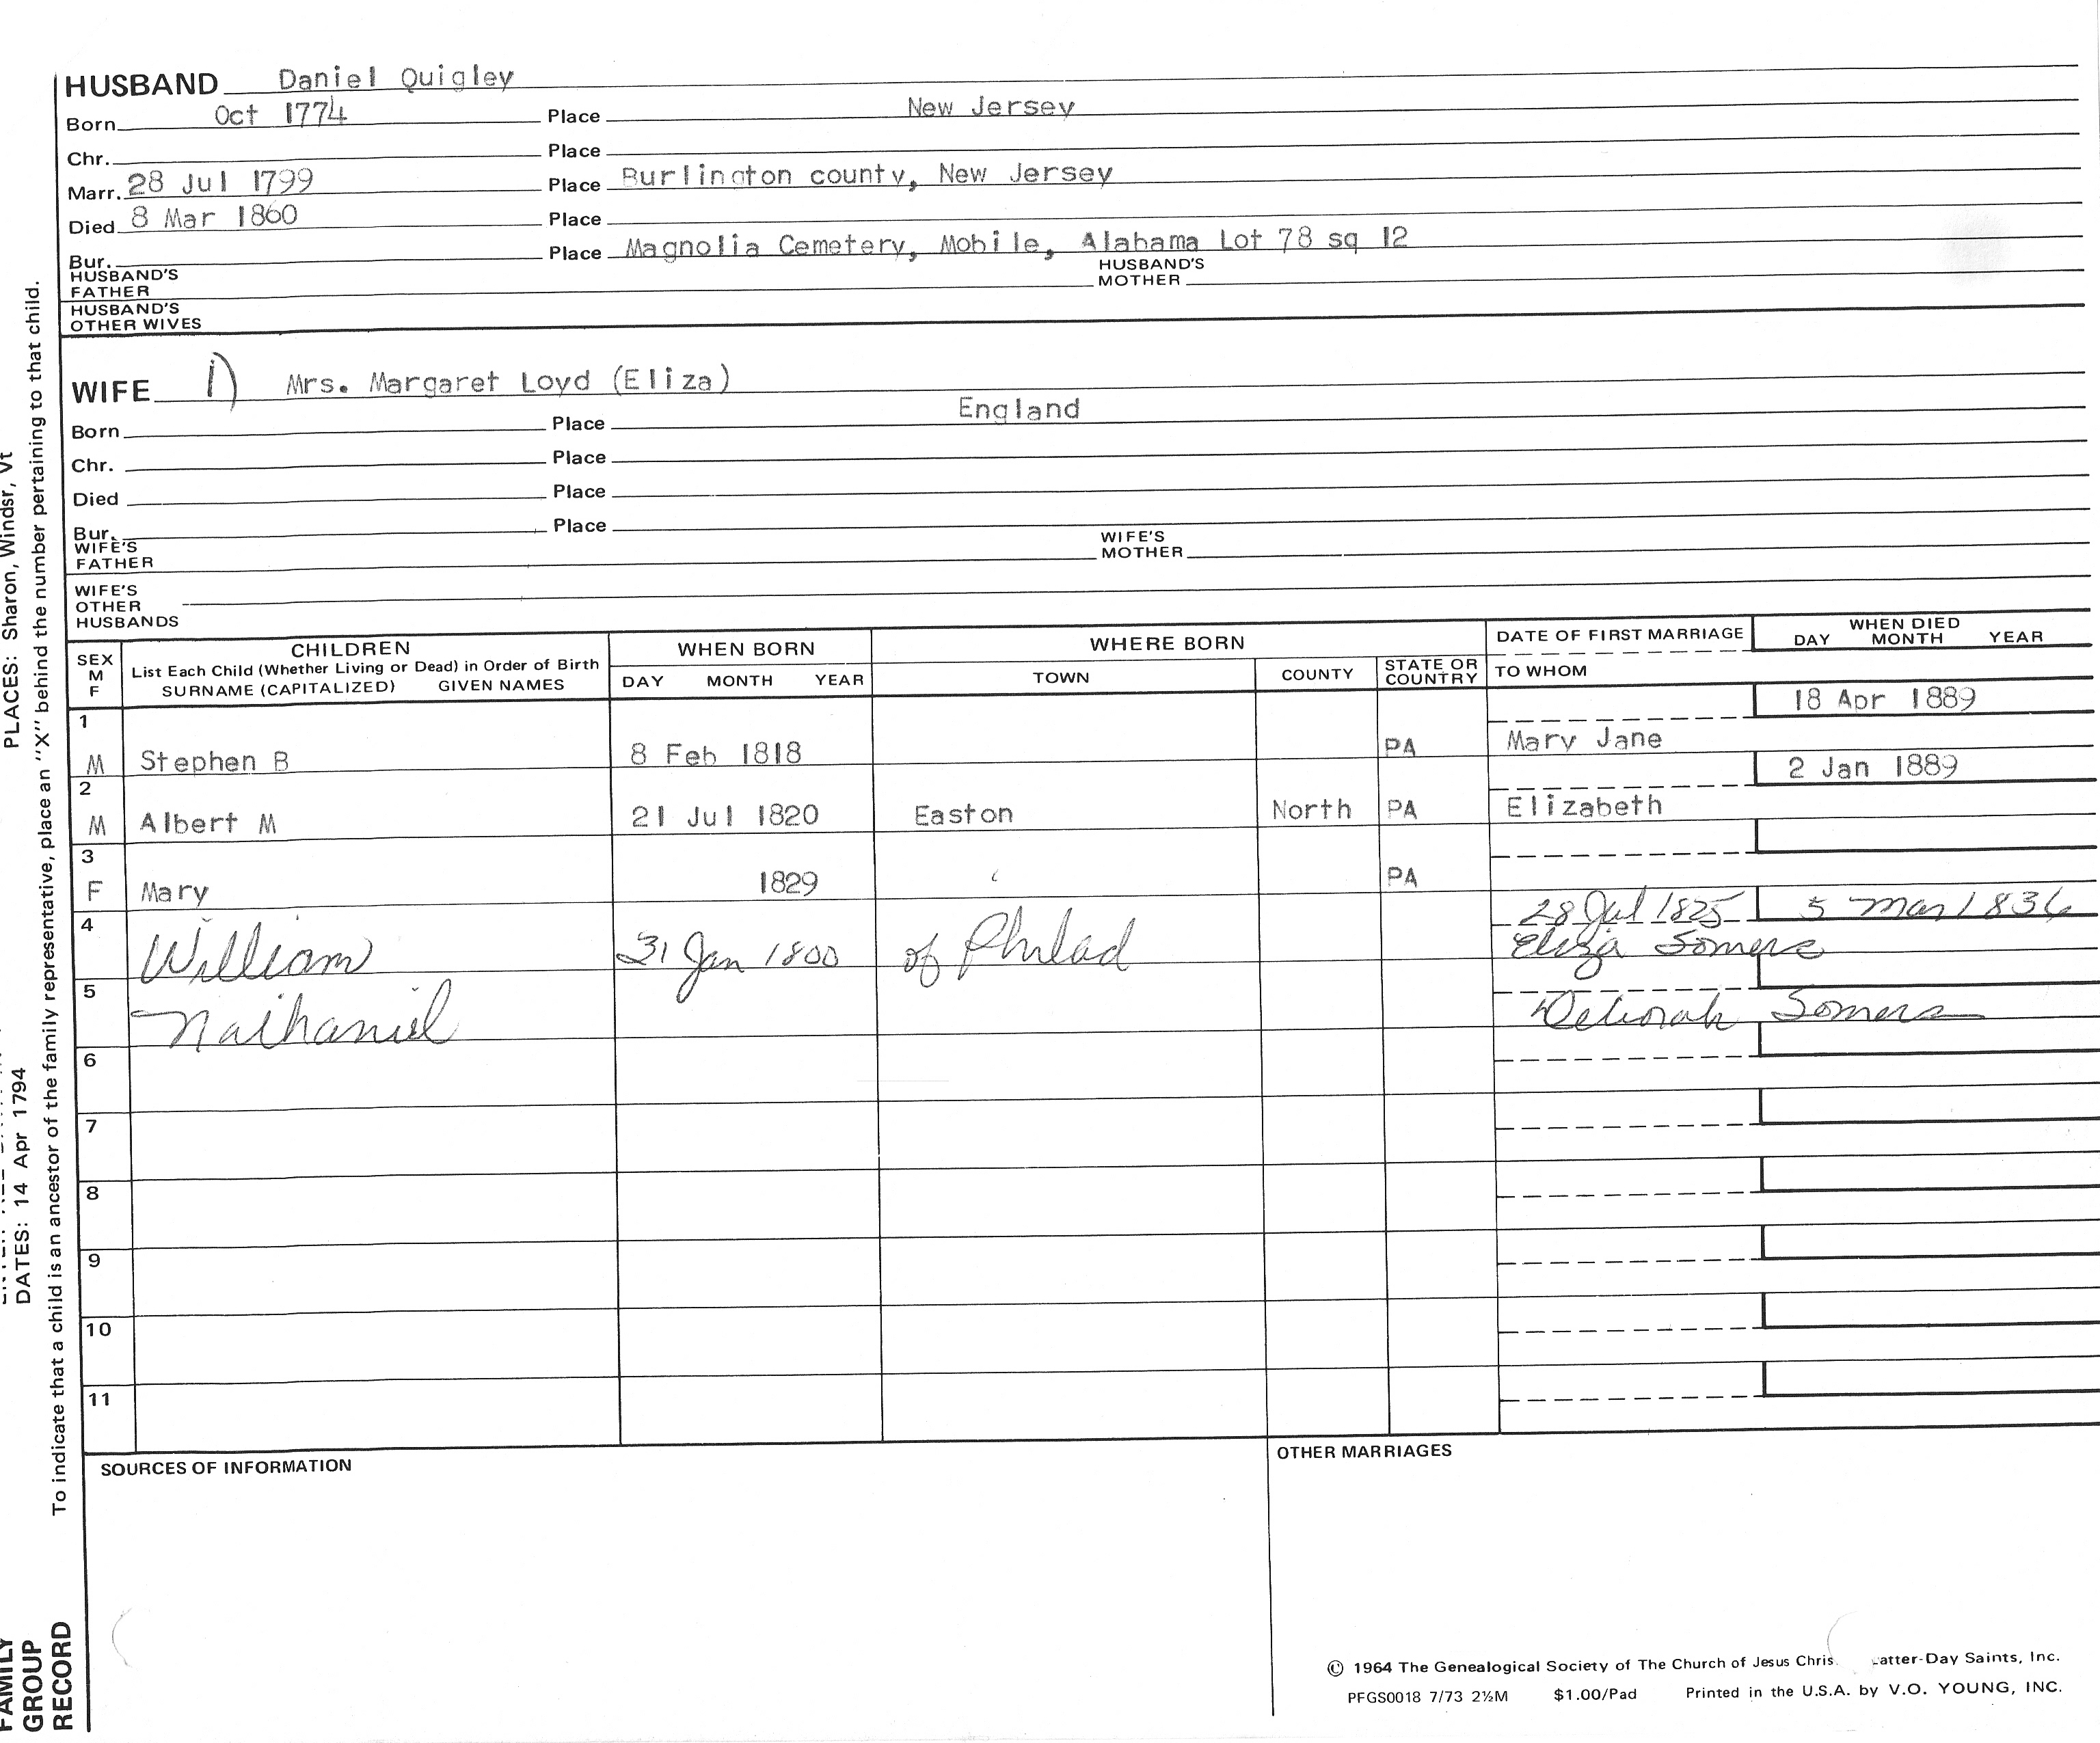 HUSBAND Daniel Quigley
Born Oct 1774 Place New Jersey
Chr. Place
Marr. 28 Jul 1799 Place Burlington county, New Jersey
Died 8 Mar 1860 Place
Bur. Place Magnolia Cemetery, Mobile, Alabama Lot 78 sq 12
HUSBAND'S FATHER HUSBAND'S MOTHER
HUSBAND'S OTHER WIVES
WIFE 1) Mrs. Margaret Loyd (Eliza)
Born Place England
Chr. Place
Died Place
Bur. Place
WIFE'S FATHER WIFE'S MOTHER
WIFE'S OTHER HUSBANDS
SEX M F
CHILDREN
List Each Child (Whether Living or Dead) in Order of Birth
SURNAME (CAPITALIZED) GIVEN NAMES
WHEN BORN
DAY MONTH YEAR
WHERE BORN
TOWN COUNTY STATE OR COUNTRY
DATE OF FIRST MARRIAGE
TO WHOM
WHEN DIED
DAY MONTH YEAR
1 18 Apr 1889
M Stephen B 8 Feb 1818 PA Mary Jane
2 2 Jan 1889
M Albert M 21 Jul 1820 Easton North PA Elizabeth
3
F Mary 1829 PA
4 28 Jul 1825 5 Mar 1836
William 31 Jan 1800 of Philad Eliza Somers
5
Nathaniel Deborah Somers
6
7
8
9
10
11
SOURCES OF INFORMATION
OTHER MARRIAGES
© 1964 The Genealogical Society of The Church of Jesus Chris atter-Day Saints, Inc.
PFGS0018 7/73 2½M $1.00/Pad Printed in the U.S.A. by V.O. YOUNG, INC.
PLACES: Sharon, Windsr, Vt
DATES: 14 Apr 1794
To indicate that a child is an ancestor of the family representative, place an "X" behind the number pertaining to that child.
FAMILY
GROUP
RECORD